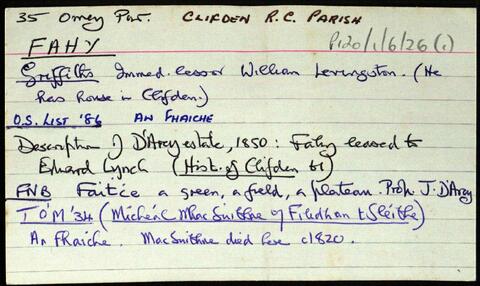 35 Omey Par. CLIFDEN R.C. PARISH
P120/1/6/26(1)
FAHY
Griffiths Immed. lessor William Levingston. (He
has house in Clifden.)
O.S. LIST '86 AN FHAICHE
Description of D'Arcy estate, 1850: Fahy leased to
Edward Lynch (Hist. of Clifden 61)
FNB Faitce a green, a field, a plateau. Prop. J. D'Arcy
T Ó'M '34 (Micheál Mhac Suibhne of Fiodhan tSléithe)
An Fhaiche. Mac Suibhne died here c1820.